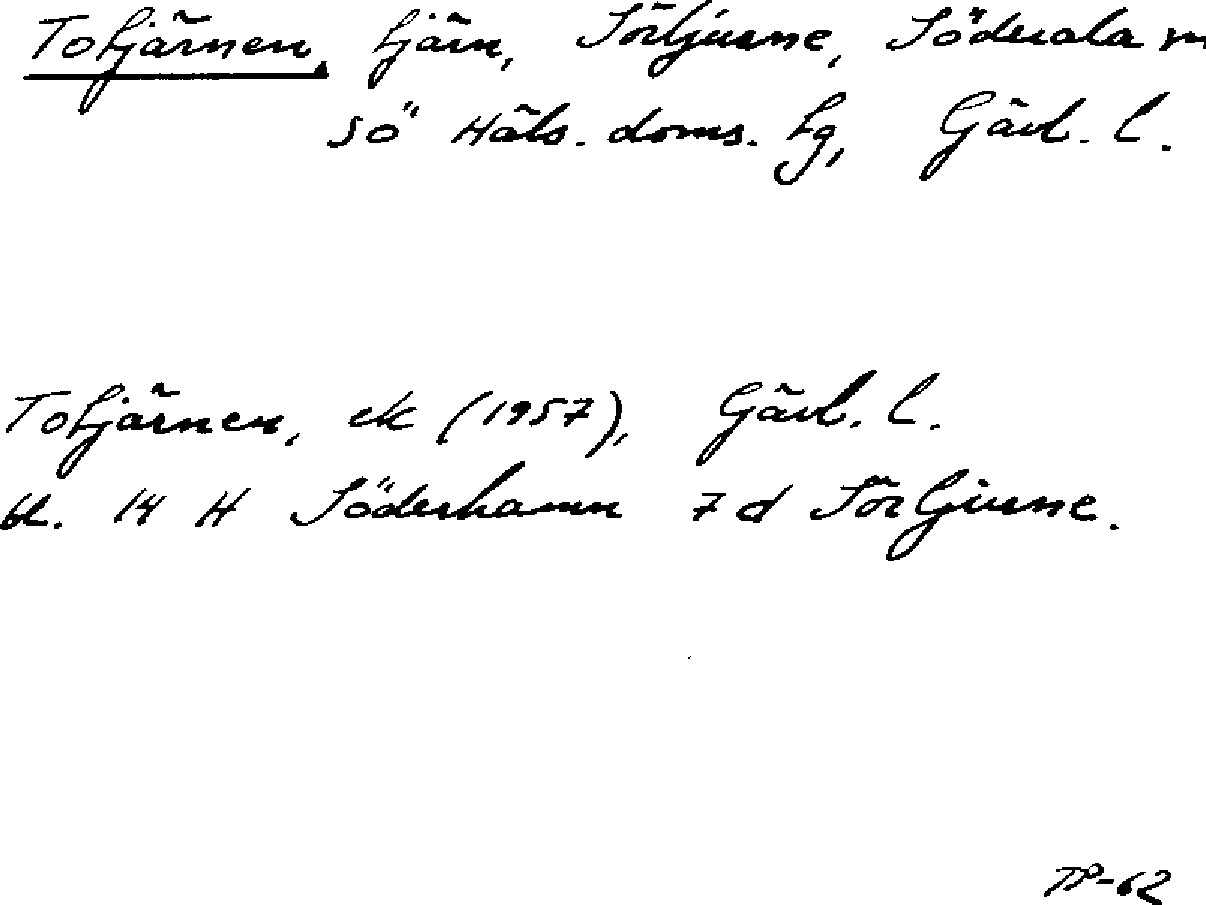 Totjärnen, tjärn, Sörljusne, Söderala sn
sö Häls. doms. tg, Gävl. l.
Totjärnen, ek (1957), Gävl. l.
bl. 14 H Söderhamn 7 d Sörljusne.
TP-62